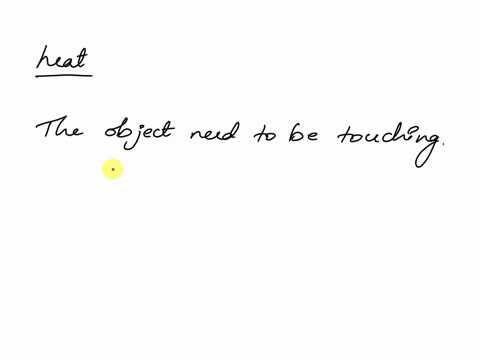 heat
The object need to be touching.